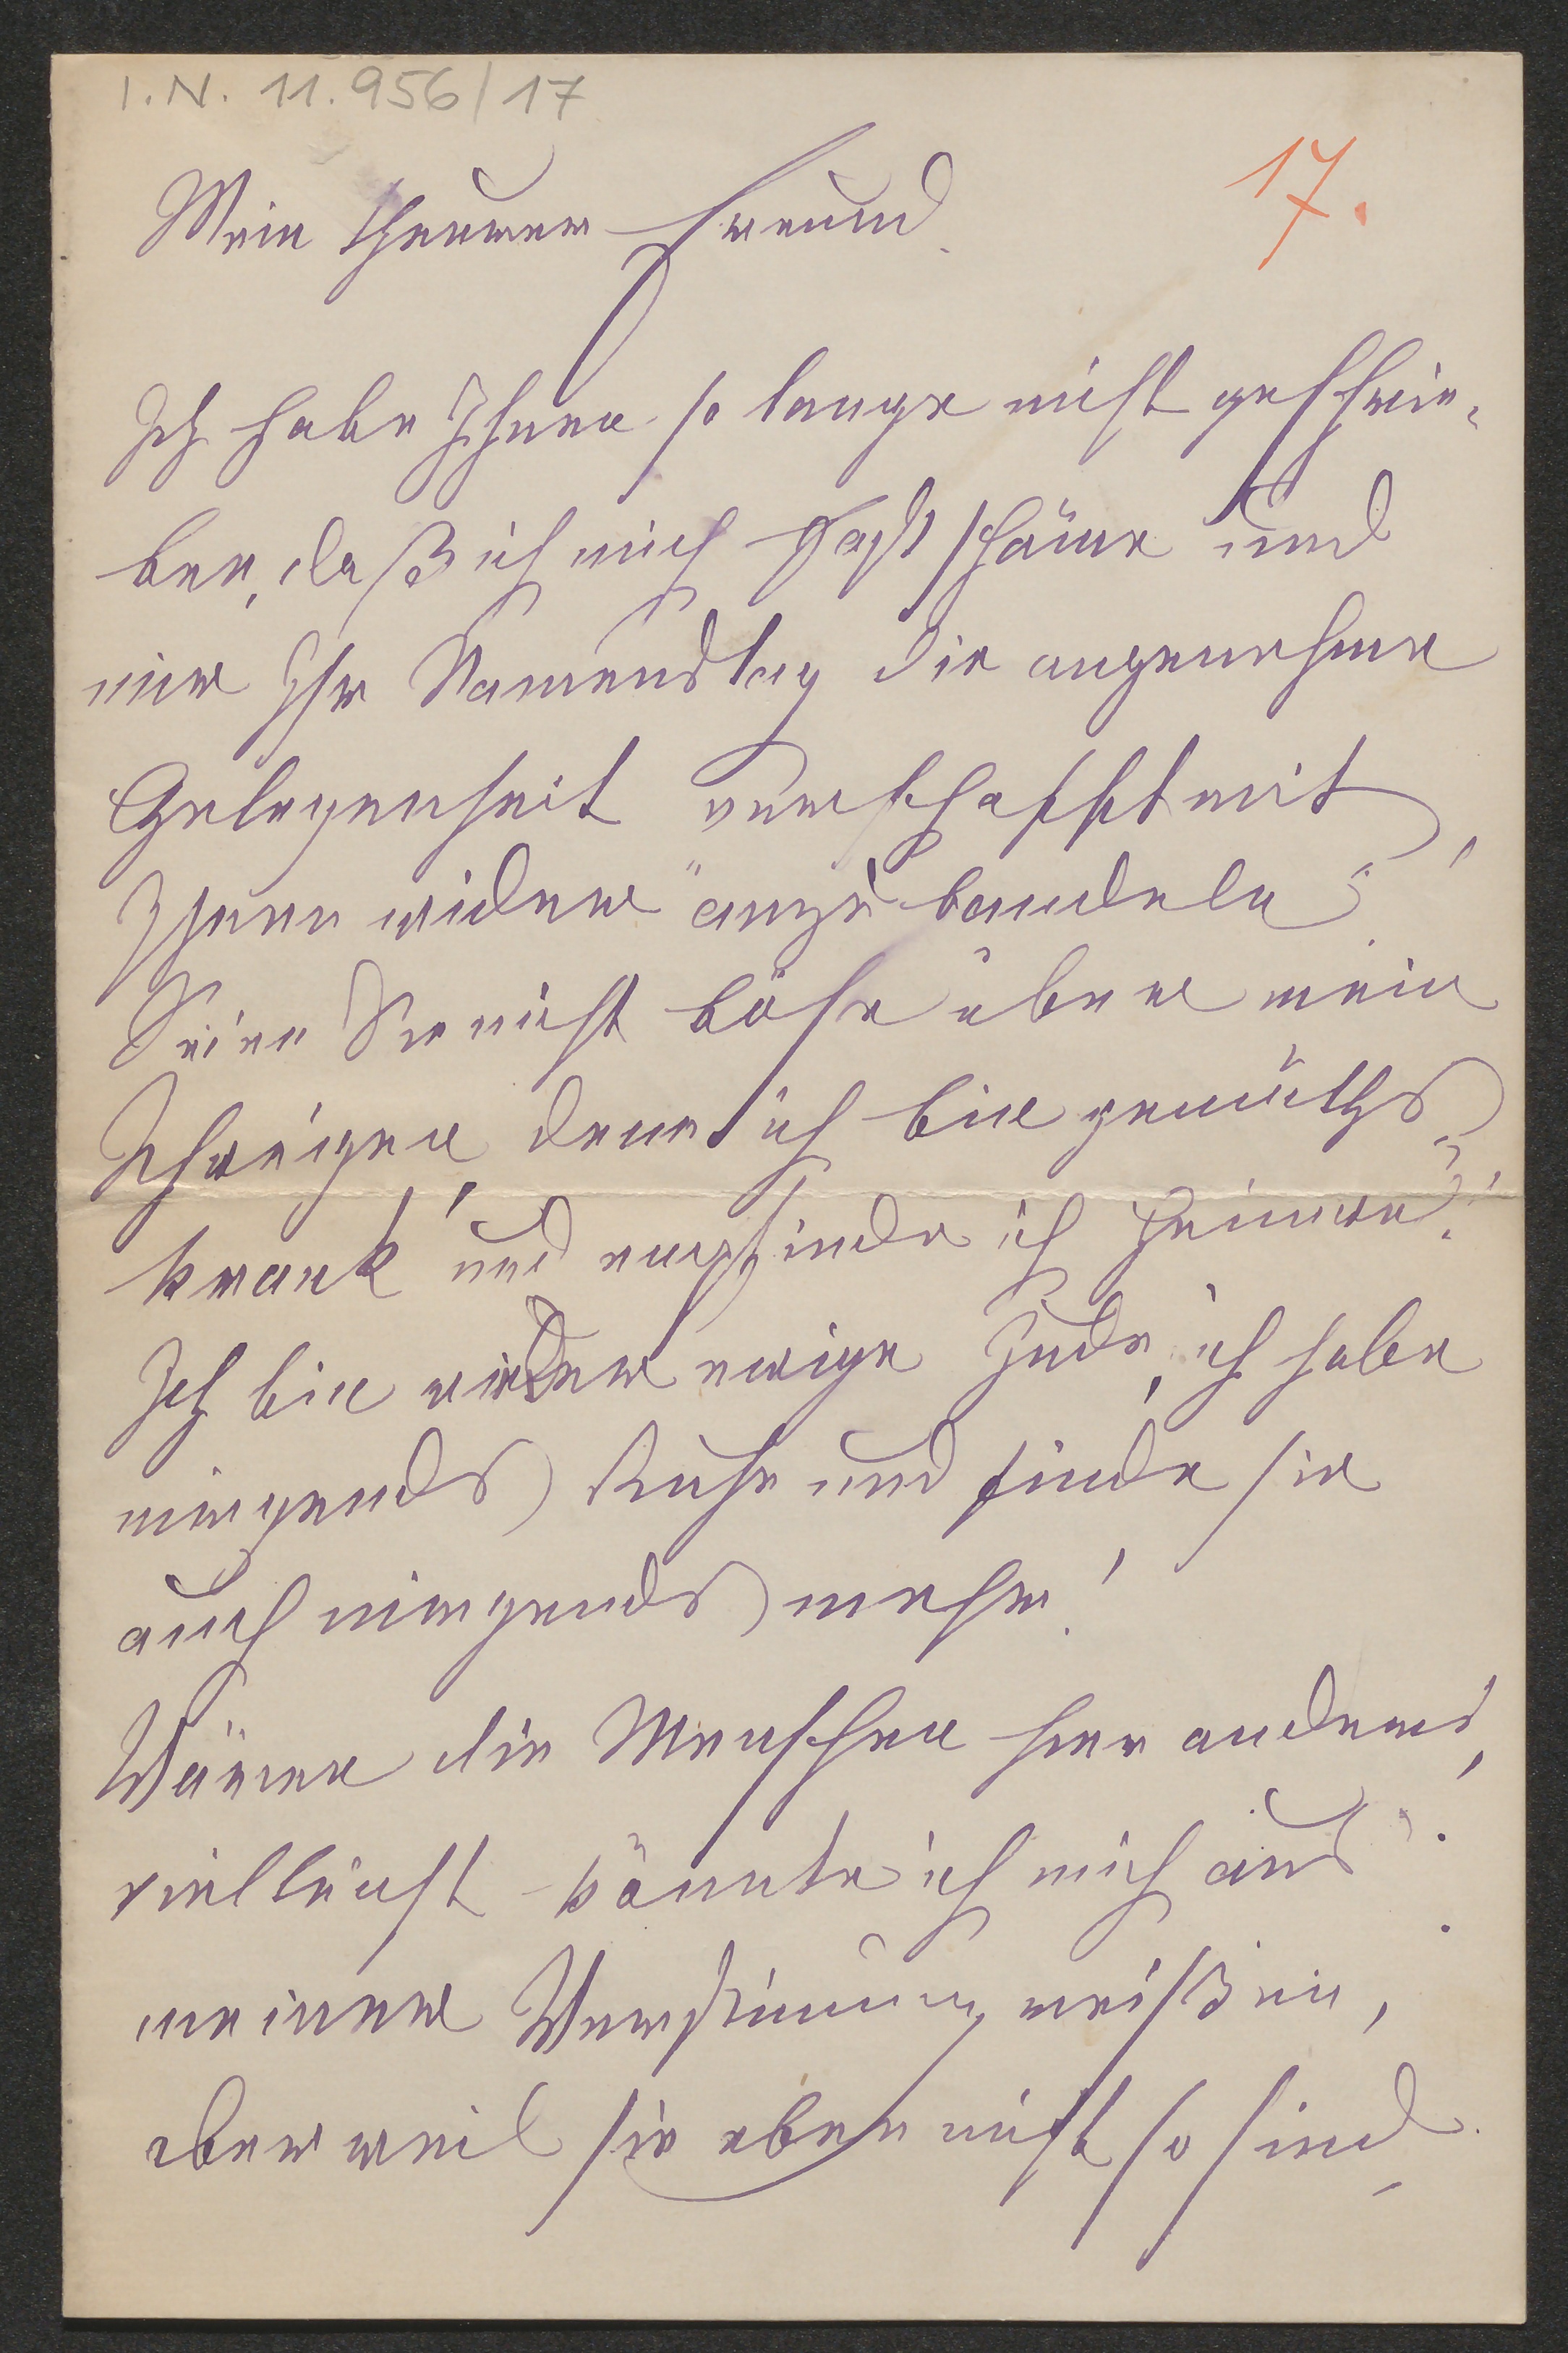 I.N. 11.956/17
17.
Mein theurer Freund.
Ich habe Ihnen so lange nicht geschrie-
ben, daß ich mich fast schäme und
mir Ihr Namenstag die angenehme
Gelegenheit verschafft mit
Ihnen wider "anzubandeln".
Seien Sie nicht böse über mein
Schweigen, denn ich bin gemüths-
krank und empfinde ich
Ich bin wieder ewige Jude, ich habe
nirgends Ruhe und finde sie
auch nirgends mehr!
Wären die Menschen hier anders,
vielleicht könnte ich mich aus
meiner Verstimung reißen,
aber weil sie eben nicht so sind